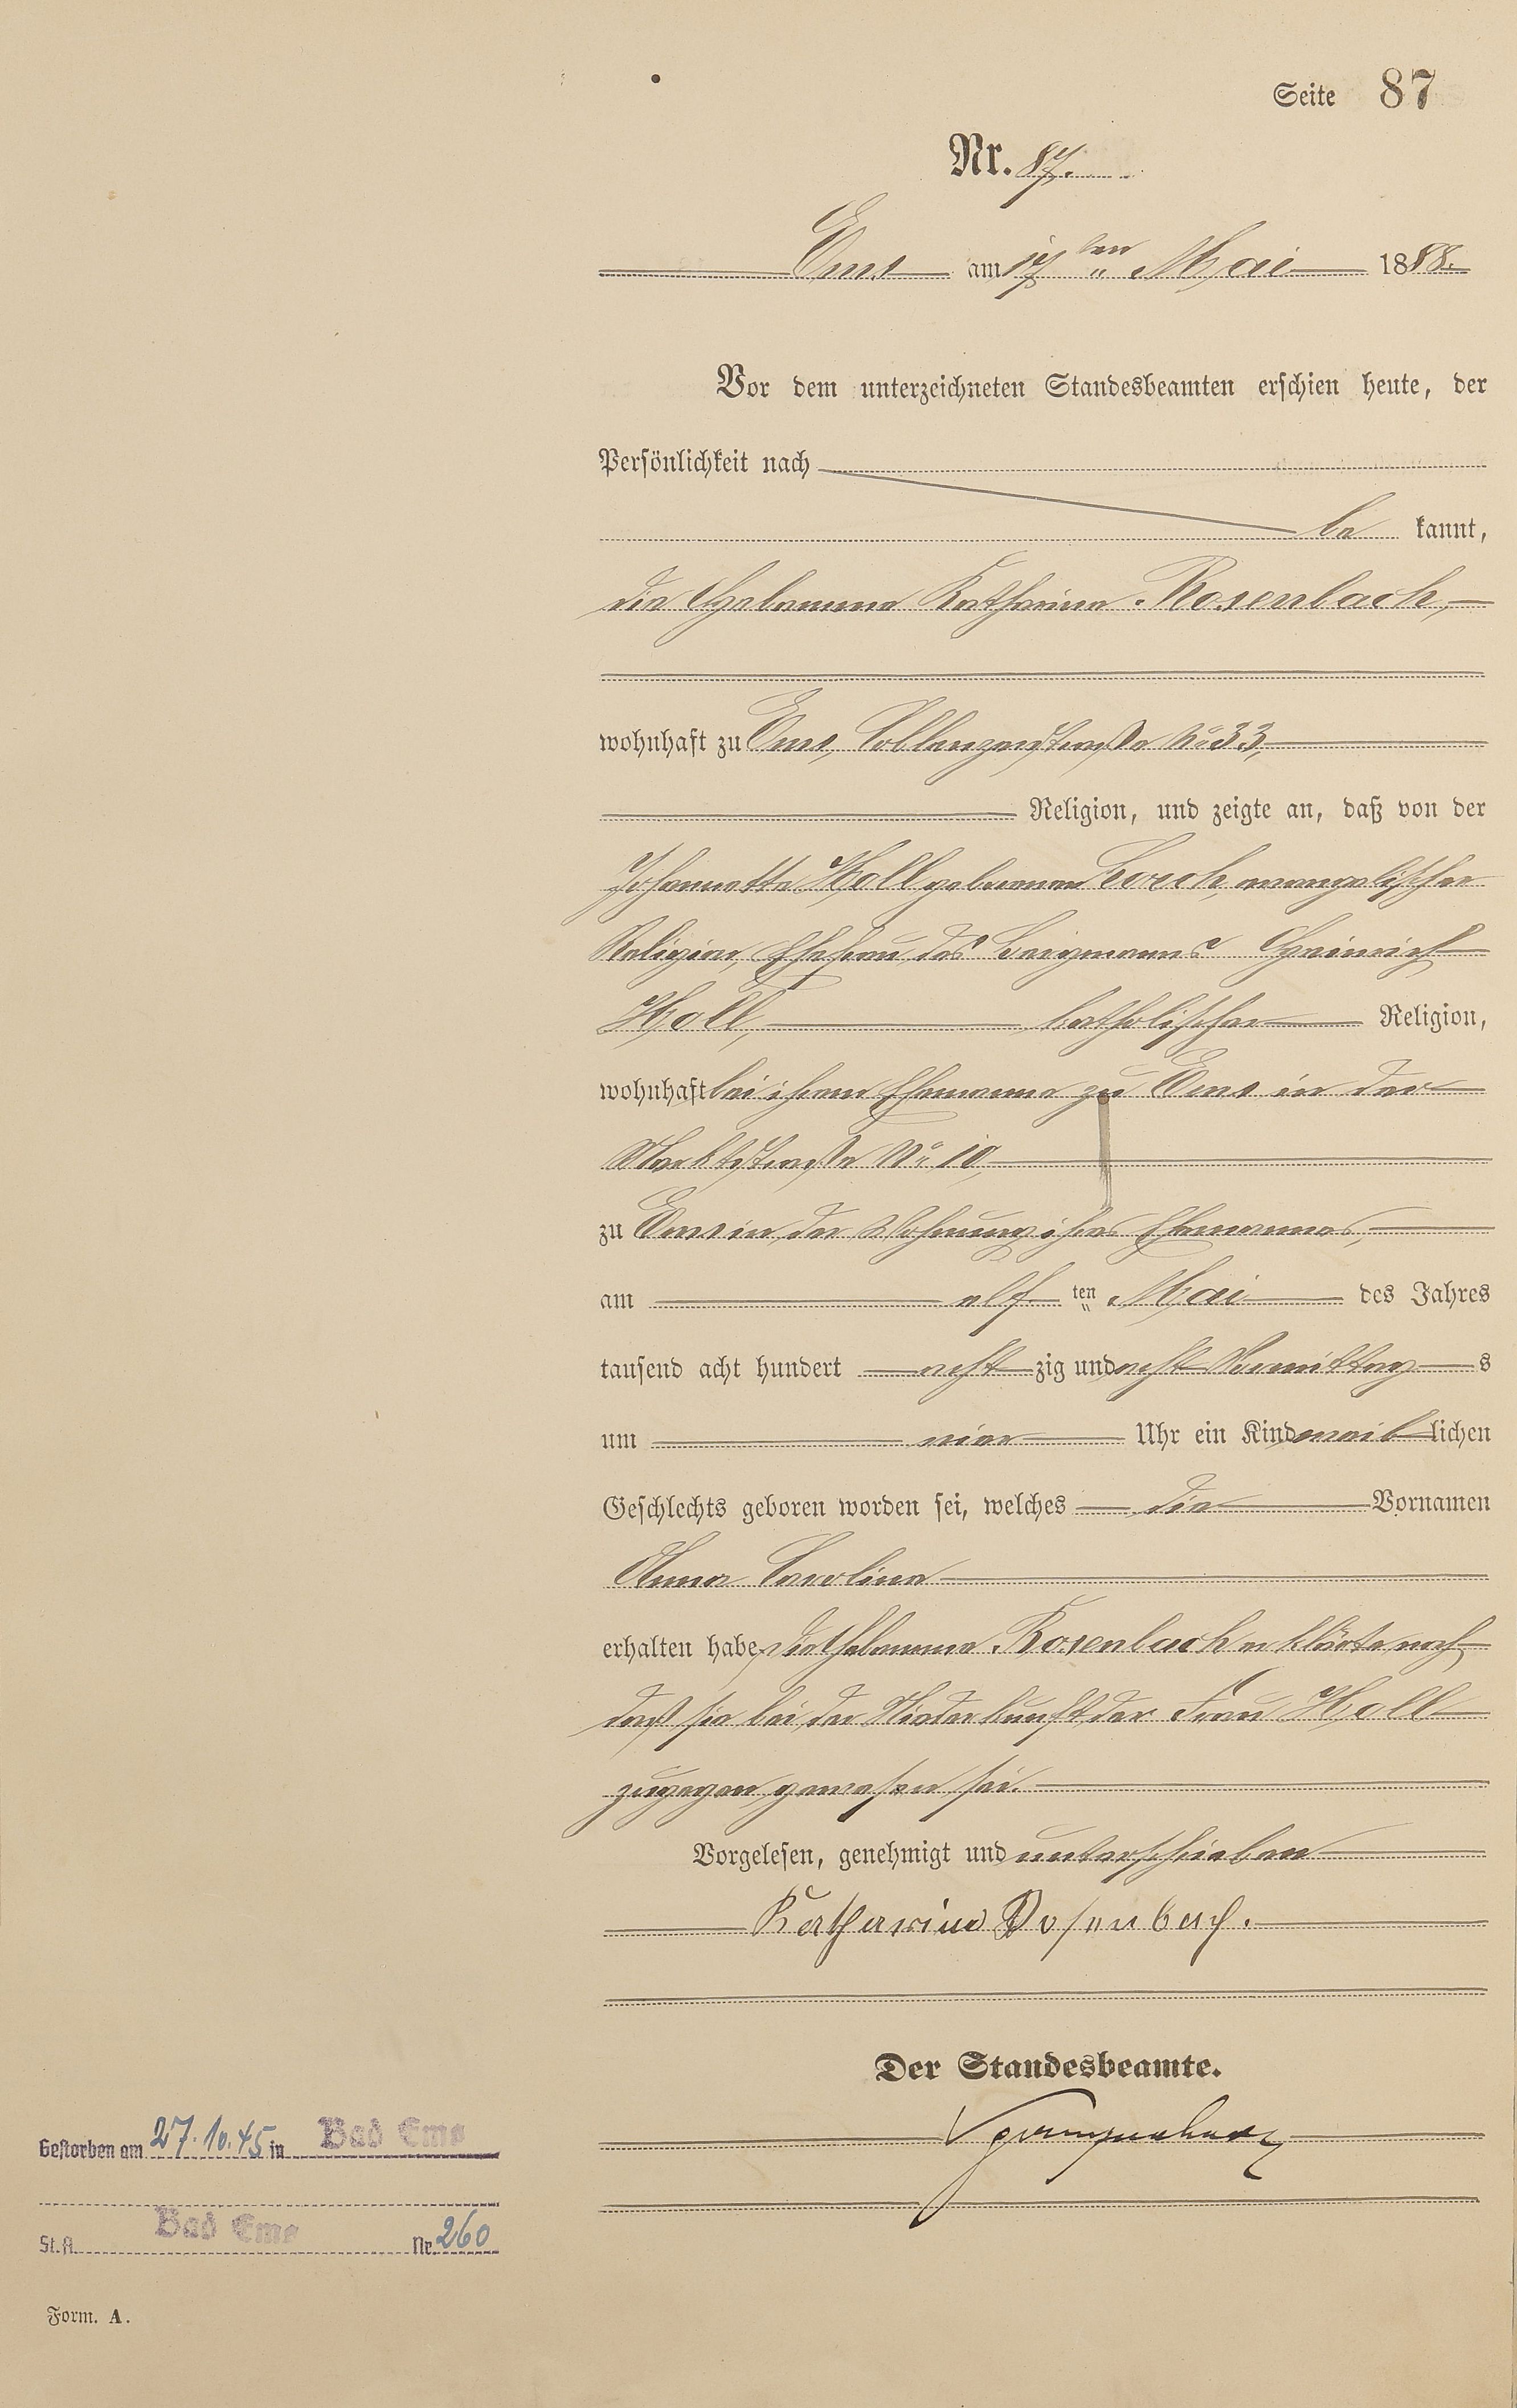 Seite 87
Nr. 87.
Ems am 17ten Mai 1888.
Vor dem unterzeichneten Standesbeamten erschien heute, der
Persönlichkeit nach
be kannt,
die Hebamme Katharina Rosenbach,
wohnhaft zu Ems, Coblenzerstraße No 33,
Religion, und zeigte an, daß von der
Johannette Holl geborenen Lorch, evangelischer
Religion, Ehefrau des Bergmanns Heinrich
Holl, katholischer Religion,
wohnhaft bei ihrem Ehemanne zu Ems in der
Marktstraße No 10,
zu Ems in der Wohnung ihres Ehemannes,
am elf ten Mai des Jahres
tausend acht hundert acht zig und acht Vormittag s
um vier Uhr ein Kind weib lichen
Geschlechts geboren worden sei, welches die Vornamen
Anna Carolina
erhalten habe, die Hebamme Rosenbach erklärte noch,
daß sie bei der Niederkunft der Frau Holl
zugegen gewesen sei.
Vorgelesen, genehmigt und unterschrieben
Katharina Rosenbach.
Der Standesbeamte.
Gestorben am 27.10.45 in Bad Ems
St.A. Bad Ems Nr. 260
Form. A.